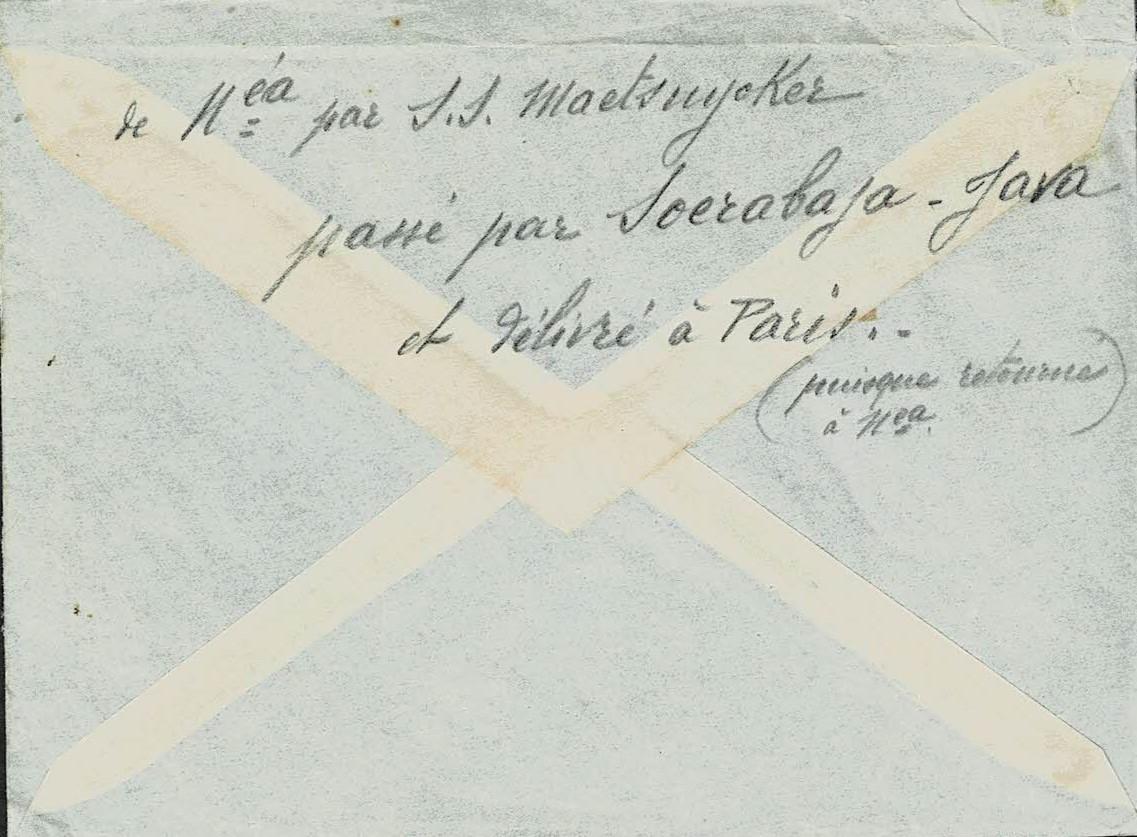 de Néa par S.S. Maetsuycker
passé par Soerabaja - Java
et délivré à Paris. -
(puisque retourné
à Néa.)